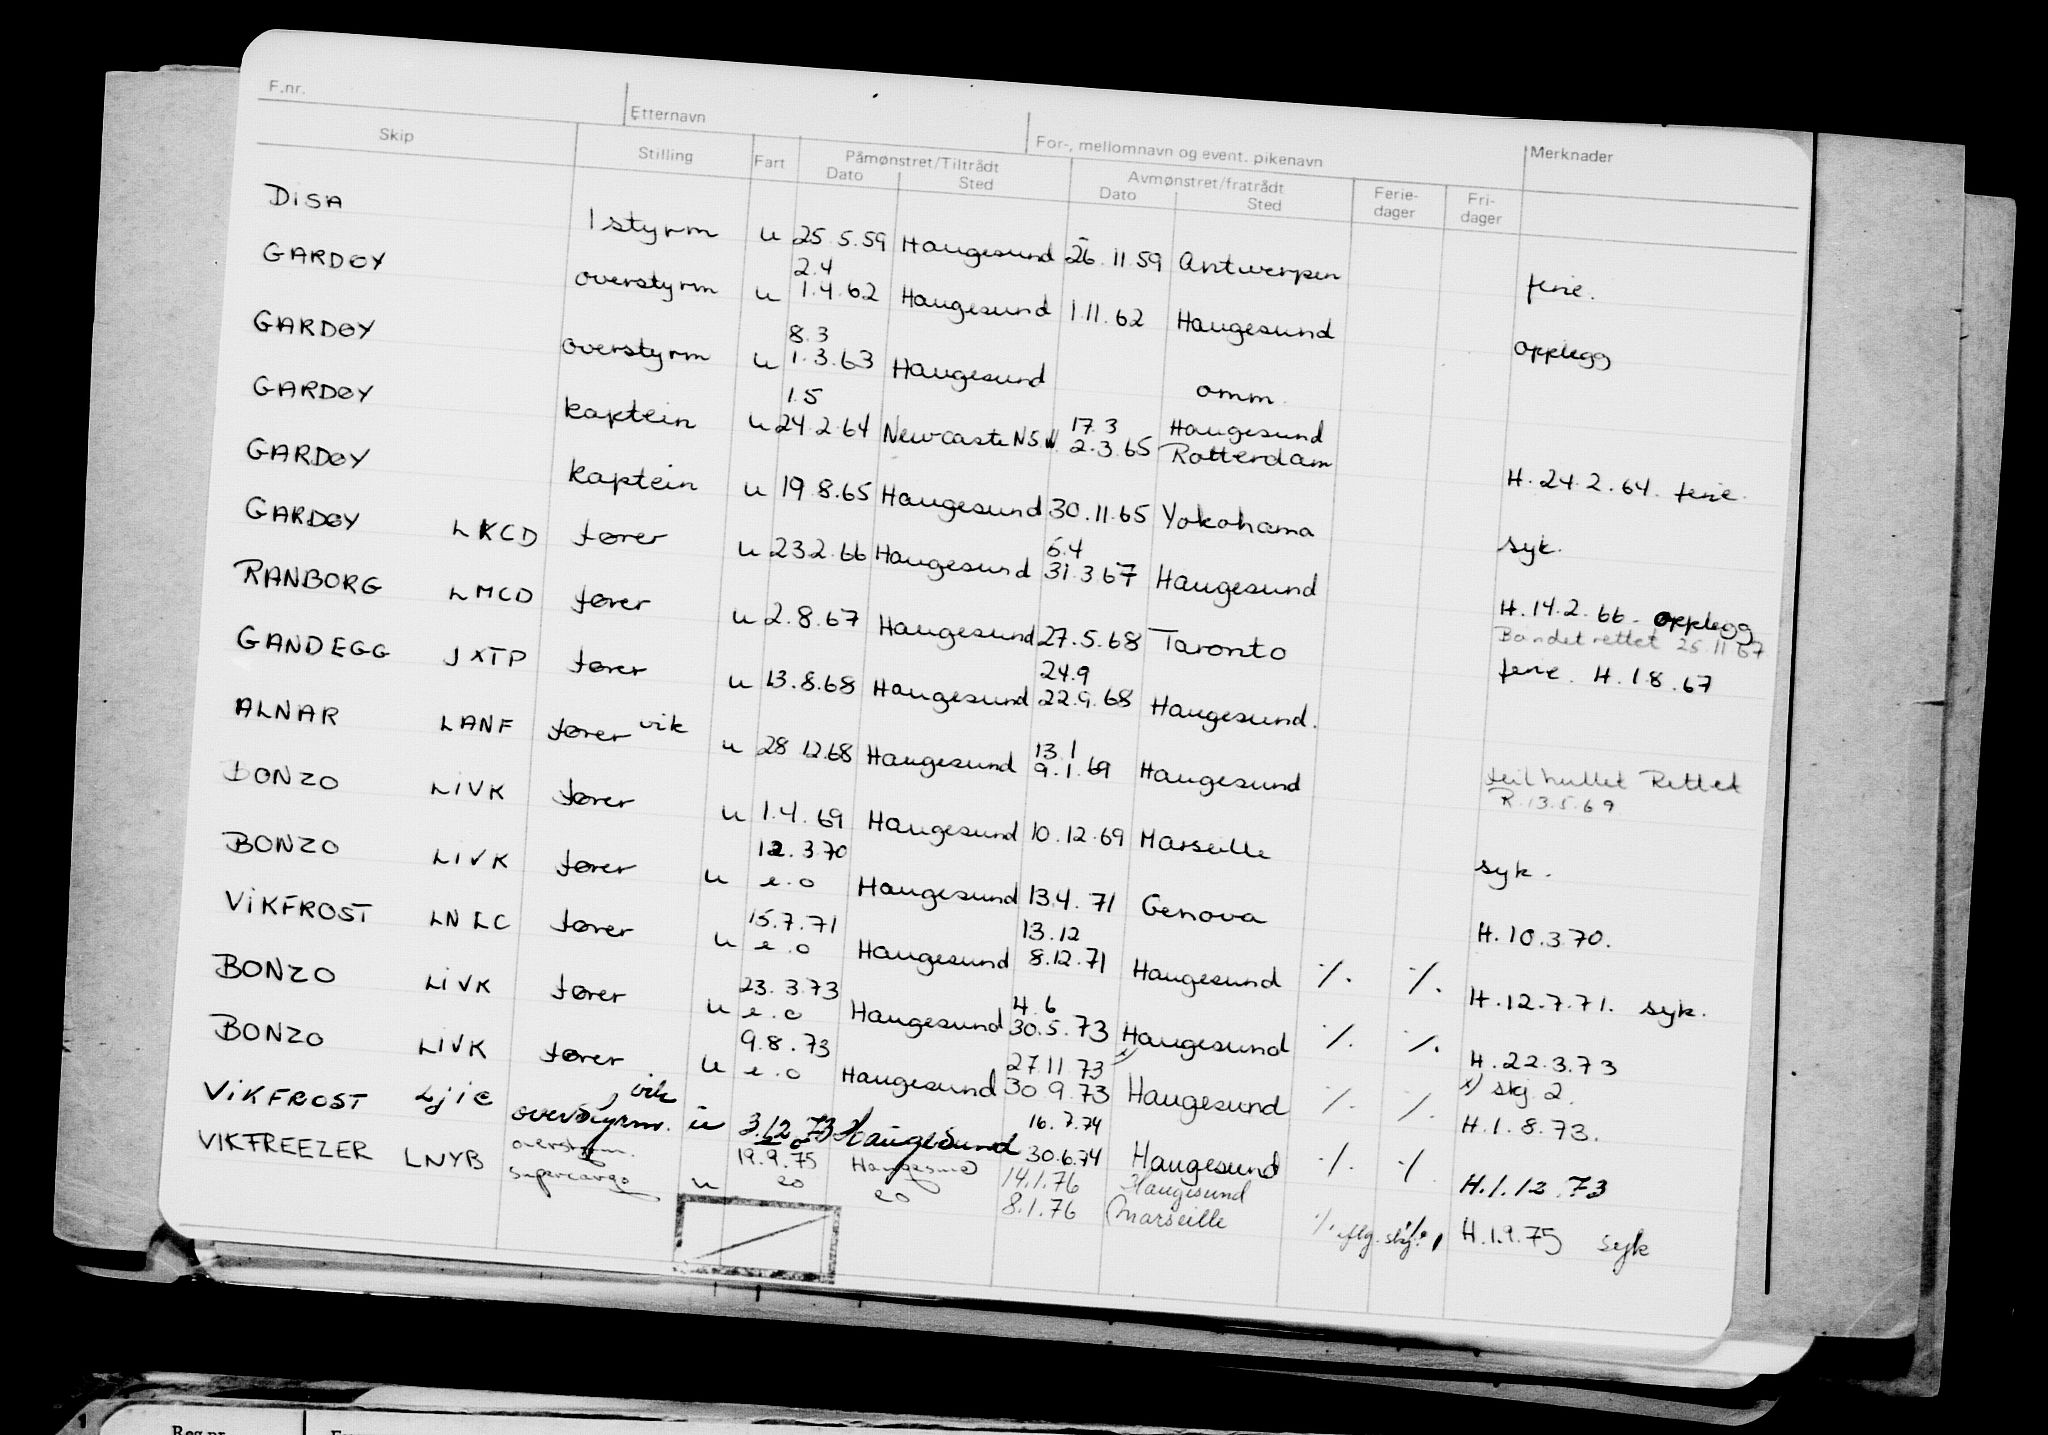 F.nr. Etternavn For-, mellomnavn og event. pikenavn Merknader
Skip Stilling Fart Påmønstret/Tiltrådt Avmønstret/fratrådt Ferie-dager Fri-dager
Dato Sted Dato Sted
DISA 1 styrm u 25.5.59 Haugesund 26.11.59 Antwerpen ferie.
2.4
GARDØY overstyrm u 1.4.62 Haugesund 1.11.62 Haugesund opplegg
8.3
GARDØY overstyrm u 1.3.63 Haugesund omm.
1.5 17.3 Haugesund
GARDØY kaptein u 24.2.64 Newcastle NSW. 2.3.65 Rotterdam H.24.2.64. ferie.
GARDØY kaptein u 19.8.65 Haugesund 30.11.65 Yokohama syk.
6.4
GARDØY LKCD fører u 23.2.66 Haugesund 31.3.67 Haugesund H.14.2.66. opplegg
Båndet rettet 25.11.67
RANBORG LMCD fører u 2.8.67 Haugesund 27.5.68 Toronto ferie. H.1.8.67
24.9
GANDEGG JXTP fører u 13.8.68 Haugesund 22.9.68 Haugesund.
13.1
ALNAR LANF fører vik u 28.12.68 Haugesund 9.1.69 Haugesund feil hullet Rettet
R.13.5.69
BONZO LIVK fører u 1.4.69 Haugesund 10.12.69 Marseille syk.
12.3.70
BONZO LIVK fører u e.o Haugesund 13.4.71 Genova H.10.3.70.
15.7.71 13.12
VIKFROST LNLC fører u e.o Haugesund 8.12.71 Haugesund ./. ./. H.12.7.71. syk.
23.3.73 4.6
BONZO LIVK fører u e.o Haugesund 30.5.73 Haugesund ./. ./. H.22.3.73
9.8.73 27.11.73 x) x) skj 2.
BONZO LIVK fører u e.o Haugesund 30.9.73 Haugesund ./. ./. H.1.8.73.
vik 16.7.74
VIKFROST LJIC overstyrm. u 3.12.73 Haugesund 30.6.74 Haugesund ./. ./. H.1.12.73
overstyrm. 19.9.75 Haugesund 14.1.76 Haugesund
VIKFREEZER LNYB supercargo u eo eo 8.1.76 Marseille ./. H.1.9.75 syk
Reg.nr.